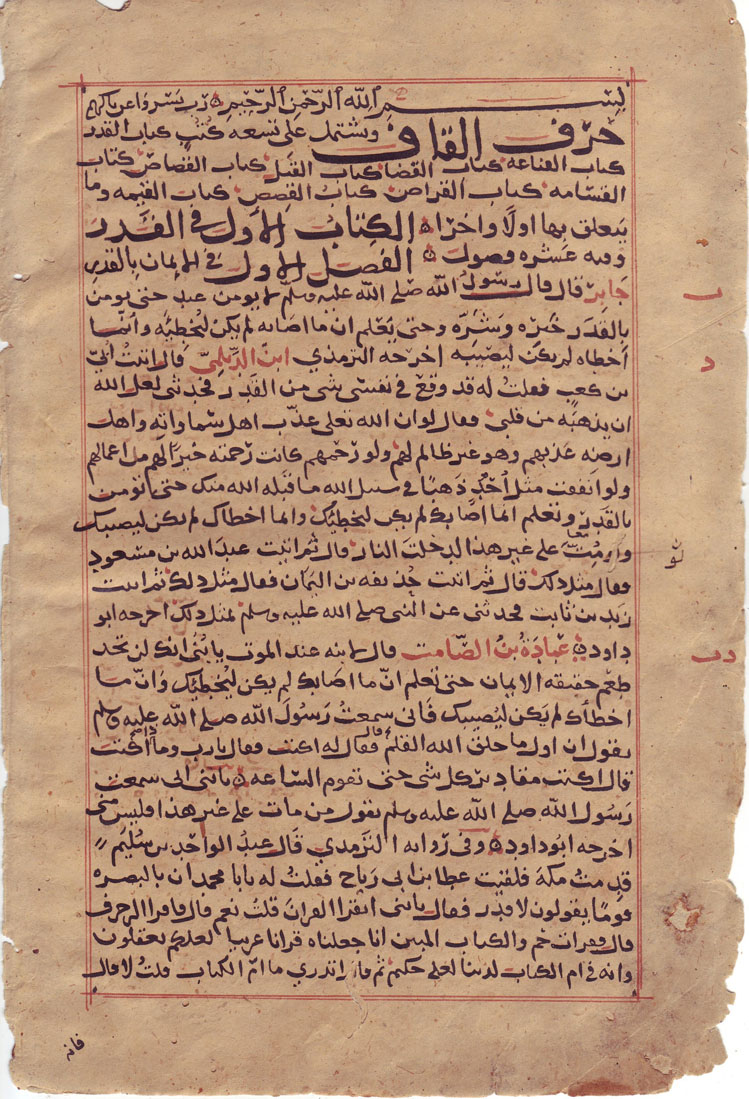 بسم الله الرحمن الرحيم رب يسر واعن يا كريم
حرف القاف ويشتمل على تسعة كتب كتاب القدر
كتاب القناعة كتاب القضا كتاب القتل كتاب القصاص كتاب
القسامة كتاب القراض كتاب القصص كتاب القيمة وما
يتعلق بها اولا واخرا الكتاب الاول في القدر
وفيه عشرة فصول الفصل الاول في الايمان بالقدر
جابر قال قال رسول الله صلى الله عليه وسلم لا يومن عبد حتى يومن
بالقدر خيره وشره وحتى يعلم ان ما اصابه لم يكن ليخطيه وان ما
اخطاه لم يكن ليصيبه اخرجه الترمذي ابن الديلمي قال اتيت ابي
بن كعب فقلت له قد وقع في نفسي شي من القدر فحدثني لعل الله
ان يذهبه من قلبي فقال لو ان الله تعلى عذب اهل سماواته واهل
ارضه عذبهم وهو غير ظالم لهم ولو رحمهم كانت رحمته خيرا لهم من اعمالهم
ولو انفقت مثل احد ذهبا في سبيل الله ما قبله الله منك حتى تومن
بالقدر وتعلم انما اصابك لم يكن ليخطيك وانما اخطاك لم يكن ليصيبك
ولو مت على غير هذا لدخلت النار قال ثم اتيت عبد الله بن مسعود
فقال مثل ذلك قال ثم اتيت حذيفه بن اليمان فقال مثل ذلك ثم اتيت
زيد بن ثابت فحدثني عن النبي صلى الله عليه وسلم بمثل ذلك اخرجه ابو
داود عبادة بن الصامت قال لابنه عند الموت يا بني انك لن تجد
طعم حقيقه الايمان حتى تعلم ان ما اصابك لم يكن ليخطيك وان ما
اخطأك لم يكن ليصيبك فاني سمعت رسول الله صلى الله عليه وسلم
يقول ان اول ما خلق الله القلم فقال له اكتب فقال يارب وما اكتب
قال اكتب مقادير كل شي حتى تقوم الساعه يا بني اني سمعت
رسول الله صلى الله عليه وسلم يقول من مات على غير هذا فليس مني
اخرجه ابو داود وفي روايه الترمذي قال عبد الواحد بن سليم
قدمت مكة فلقيت عطا بن ابي رباح فقلت له يابا محمد ان بالبصره
قوما يقولون لا قدر فقال يا بني اتقرا القران قلت نعم قال فاقرا الزخرف
قال فقرات حم والكتاب المبين انا جعلناه قرانا عربيا لعلكم تعقلون
وانه في ام الكتاب لدينا لعلي حكيم ثم قال اتدري ما ام الكتاب قلت لا قال
فانه